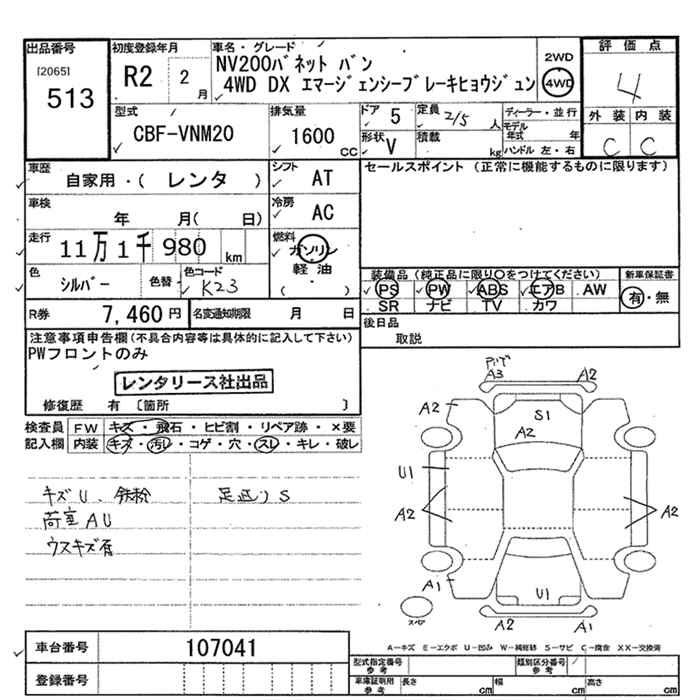 出品番号 初度登録年月 車名・グレード 2WD 評価点
[2065] 513 R2 2月 NV200バネット バン 4WD 4
4WD DX エマージェンシーブレーキヒョウジュン
型式 排気量 ドア 5 定員 2/5 人 ディーラー・並行 外装 内装
CBF-VNM20 1600 CC 形状 V 積載 kg モデル年式 年 ハンドル 左・右 C C
車歴 自家用・( レンタ ) シフト AT セールスポイント (正常に機能するものに限ります)
車検 年 月( 日) 冷房 AC
走行 11万1千980 km 燃料 ガソリン 軽油 ( )
色 シルバー 色替 色コード K23 装備品 (純正品に限り○をつけてください) 新車保証書
PS PW ABS エアB AW 有・無
R券 7,460円 名変通知期限 月 日 SR ナビ TV カワ
注意事項申告欄(不具合内容等は具体的に記入して下さい) 後日品
PWフロントのみ 取説
レンタリース社出品
修復歴 有 〔箇所 〕
検査員 FW キズ・飛石・ヒビ割・リペア跡・×要
記入欄 内装 キズ・汚レ・コゲ・穴・スレ・キレ・破レ
キズU、鉄粉 足廻りS
荷室AU
ウスキズ有
A3 A2
A2 S1 A2
A2
U1
A2 A2
A1 U1
A2 A1
スペア
A-キズ E-エクボ U-凹み W-補修跡 S-サビ C-腐食 XX-交換済
車台番号 107041 型式指定番号 参考 類別区分番号 参考
登録番号 車庫証明用 参考 長さ cm 幅 cm 高さ cm